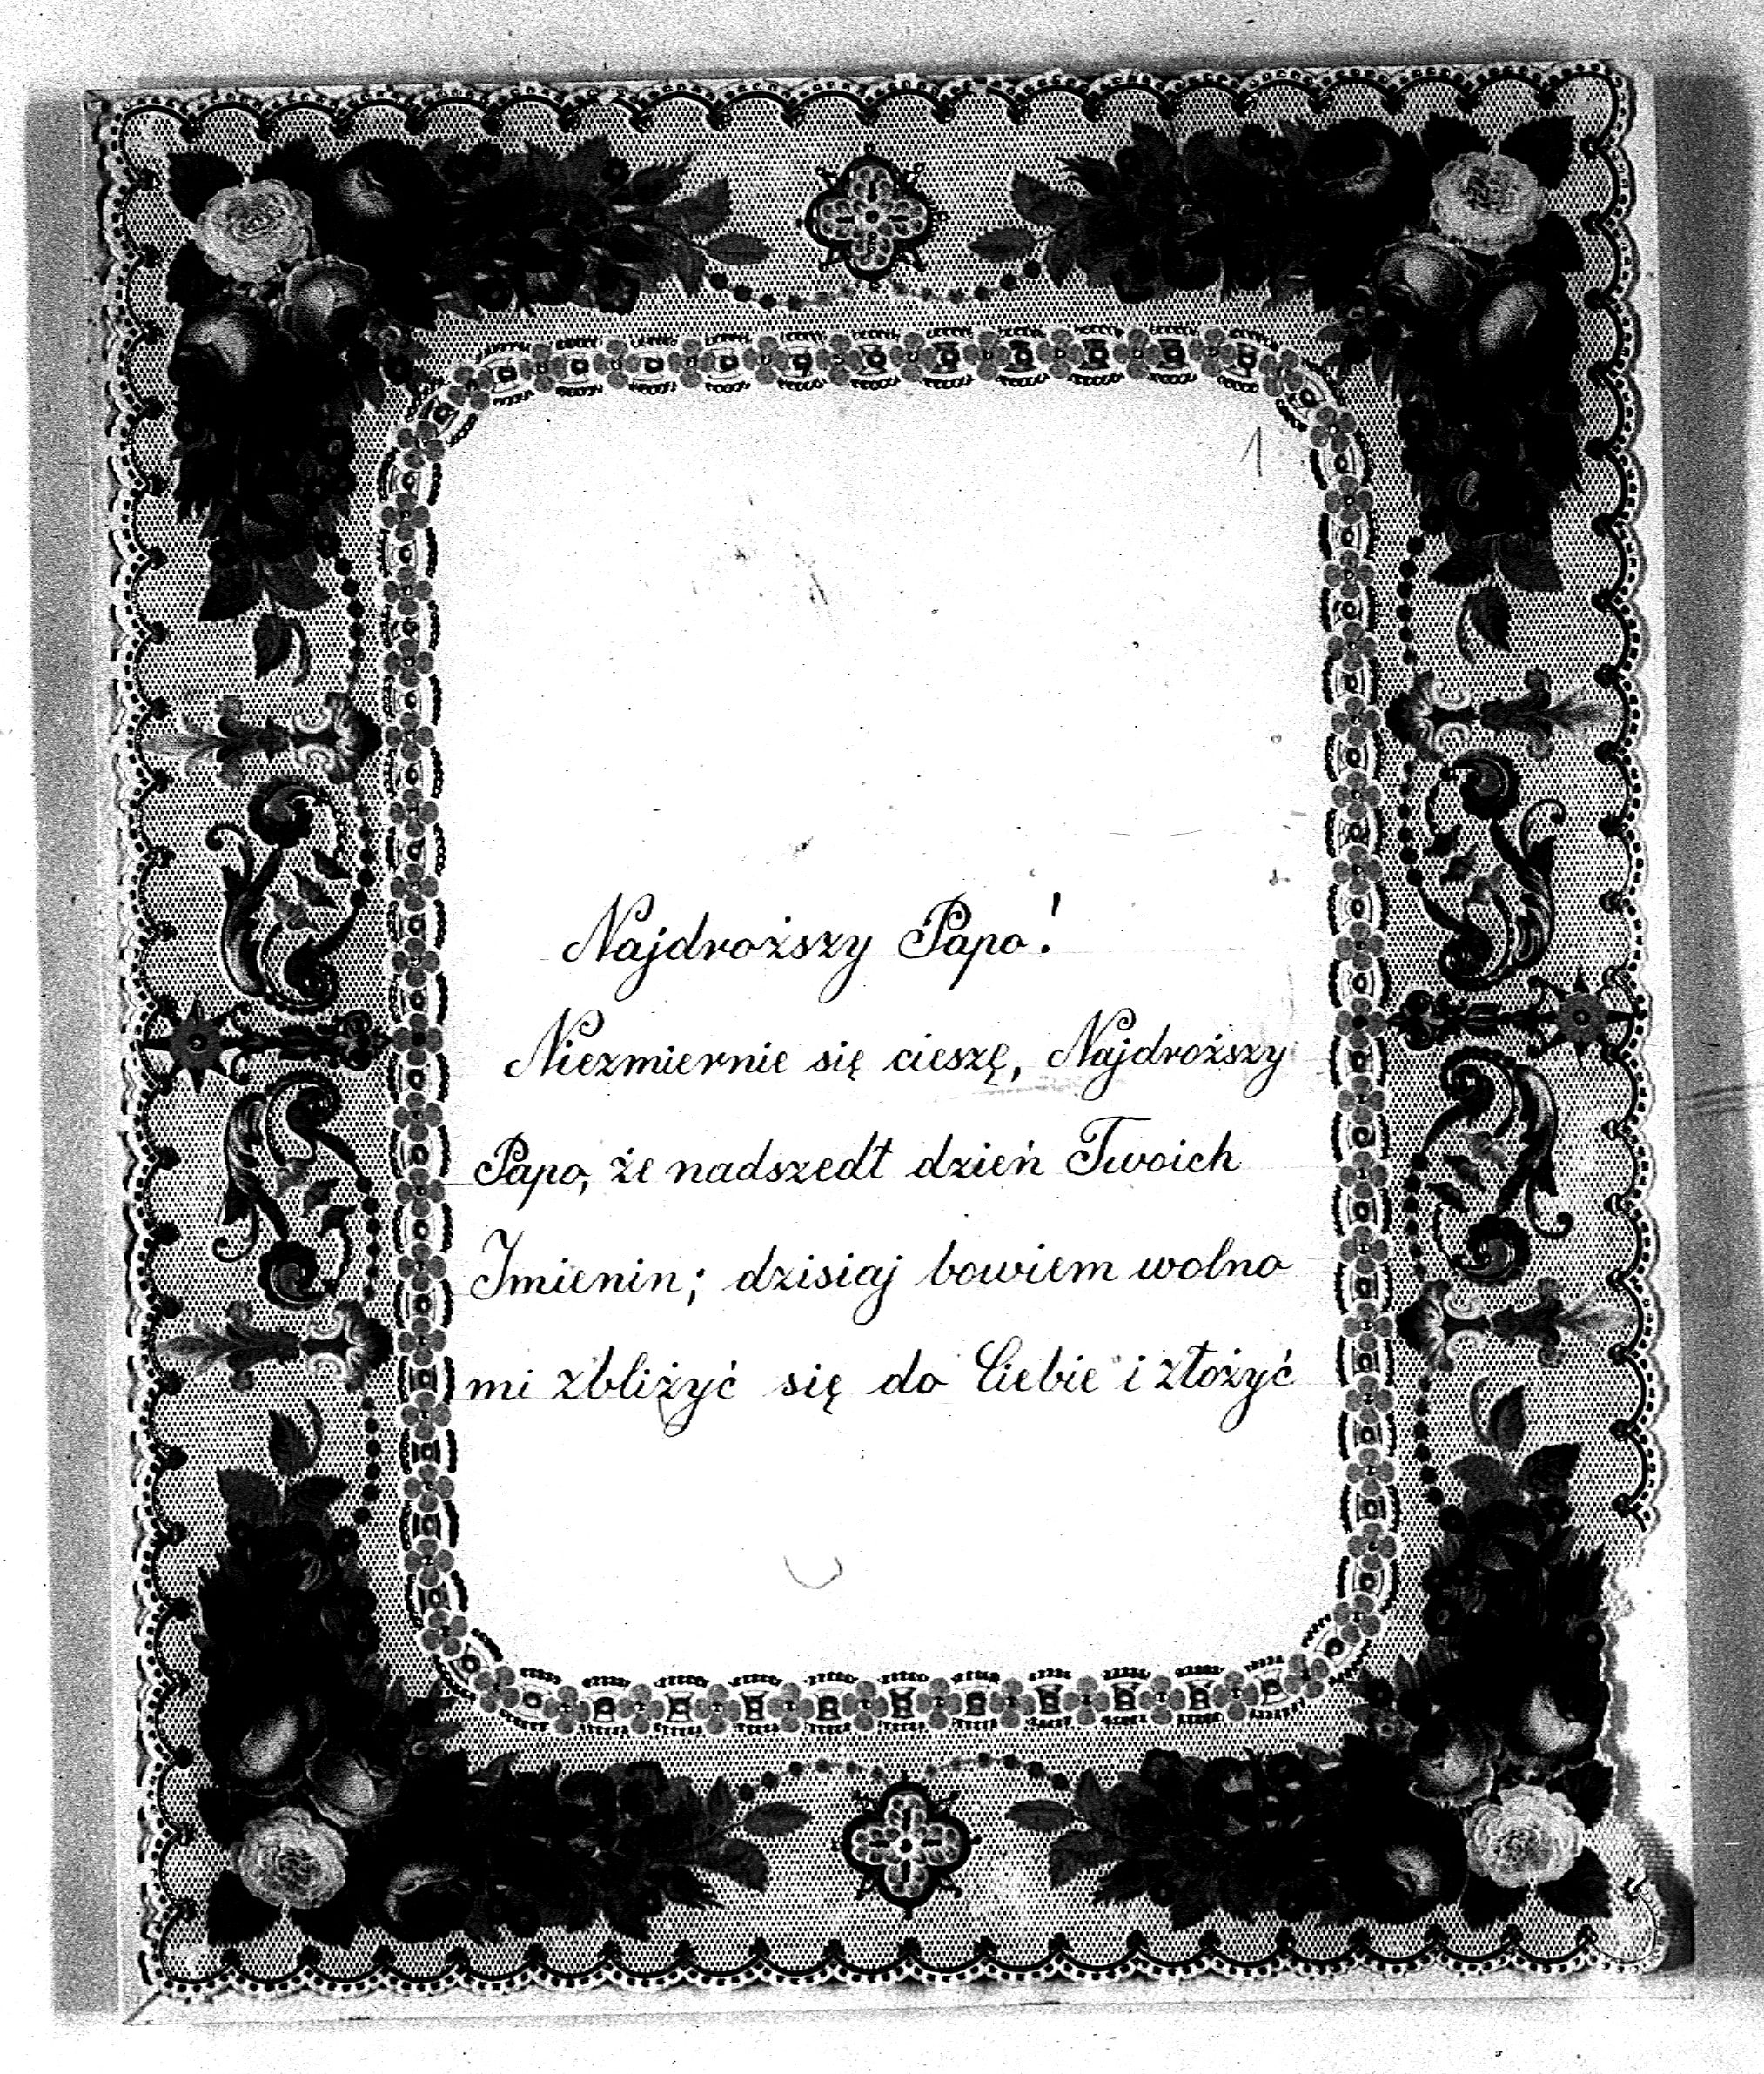 1
Najdroższy Papo!
Niezmiernie się cieszę, Najdroższy
Papo, że nadszedł dzień Twoich
Imienin; dzisiaj bowiem wolno
mi zbliżyć się do Ciebie i złożyć